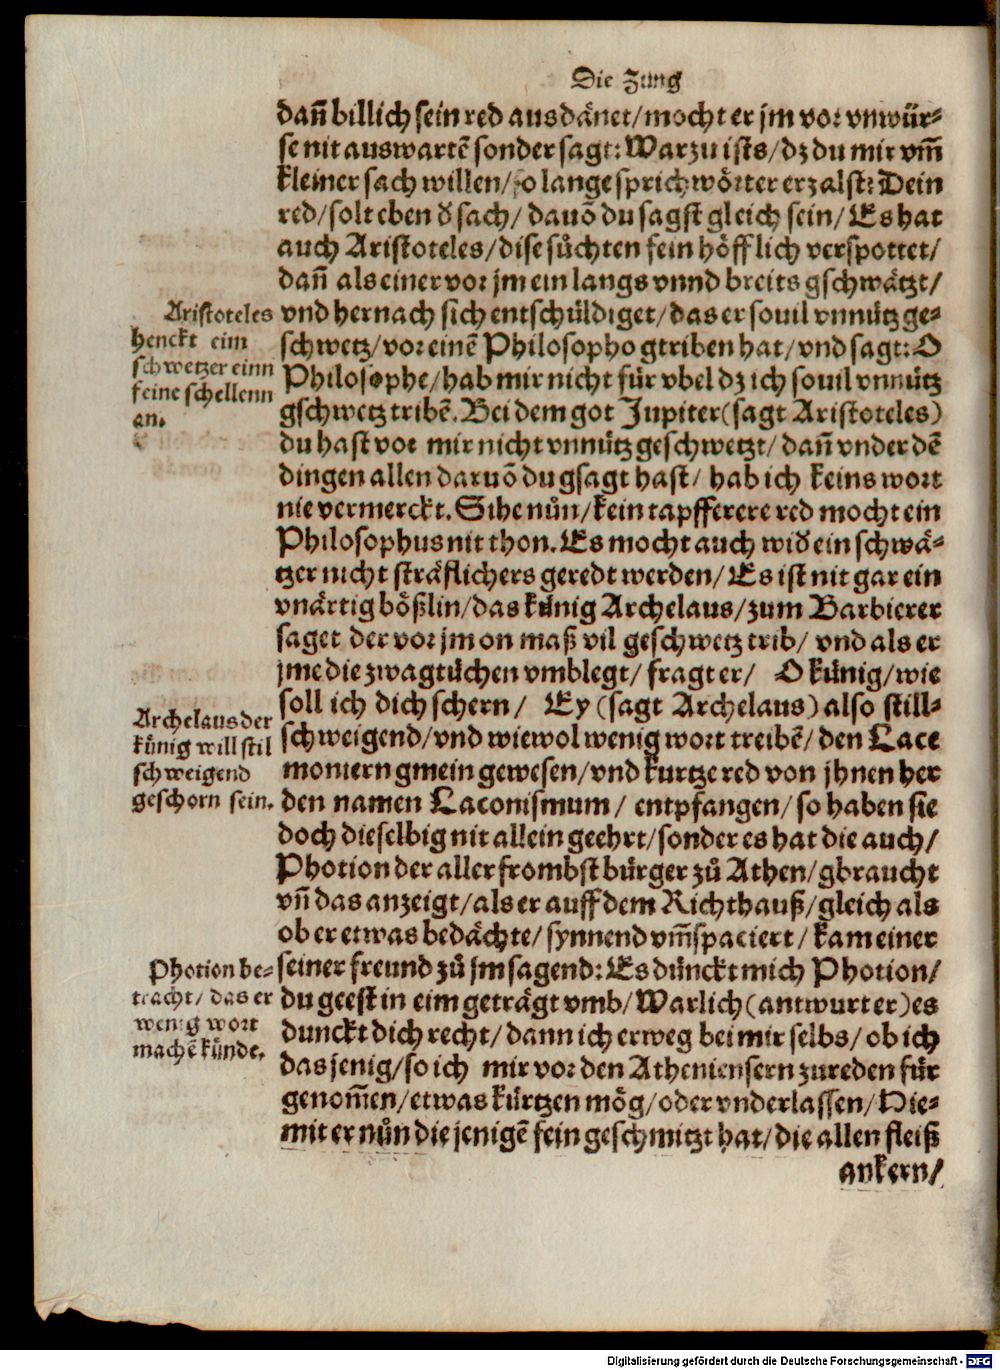 Die Zung
dañ billich sein red ausdänet/mocht er jm vor vnwür⸗
se nit auswartē sonder sagt: Warzu ists/dz du mir vm̃
kleiner sach willen/so lange sprichwörter erzalst? Dein
red/solt eben d̕ sach/ dauō du sagst gleich sein/ Es hat
auch Aristoteles/dise süchten fein höfflich verspottet/
dañ als einer vor jm ein langs vnnd breits gschwätzt/
vnd hernach sich entschüldiget/das er souil vnnütz ge⸗
schwetz/vor einē Philosopho gtriben hat/vnd sagt: O
Philosophe/hab mir nicht für vbel dz ich souil vnnütz
gschwetz tribē. Bei dem got Jupiter(sagt Aristoteles)
du hast vor mir nicht vnnütz geschwetzt/ dañ vnder dē
dingen allen daruō du gsagt hast/ hab ich keins wort
nie vermerckt. Sihe nůn/kein tapfferere red mocht ein
Philosophus nit thon. Es mocht auch wid̕ ein schwä⸗
tzer nicht sträflichers geredt werden/ Es ist nit gar ein
vnärtig bößlin/das künig Archelaus/zum Barbierer
saget der vor jm on maß vil geschwetz trib/ vnd als er
jme die zwagtüchen vmblegt/ fragt er/ O künig/wie
soll ich dich schern/ Ey (sagt Archelaus) also still⸗
schweigend/vnd wiewol wenig wort treibē/ den Lace
moniern gmein gewesen/vnd kurtze red von jhnen her
den namen Laconismum/ entpfangen/ so haben sie
doch dieselbig nit allein geehrt/sonder es hat die auch/
Photion der aller frombst bürger zů Athen/gbraucht
vñ das anzeigt/als er auff dem Richthauß/gleich als
ob er etwas bedächte/ synnend vm̃spaciert/ kam einer
seiner freund zů jm sagend: Es dünckt mich Photion/
du geest in eim geträgt vmb/ Warlich(antwurt er)es
dunckt dich recht/ dann ich erweg bei mir selbs/ ob ich
das jenig/so ich mir vor den Atheniensern zureden für
genom̃en/etwas kürtzen mög/oder vnderlassen/ Hie⸗
mit er nůn die jenigē fein geschmitzt hat/die allen fleiß
ankern/
Aristoteles
henckt eim
schwetzer einn
feine schellenn
an.
Archelaus der
künig will stil
schweigend
geschorn sein.
Photion be⸗
tracht/ das er
wenig wort
machē künde.
Digitalisierung gefördert durch die Deutsche Forschungsgemeinschaft - DFG